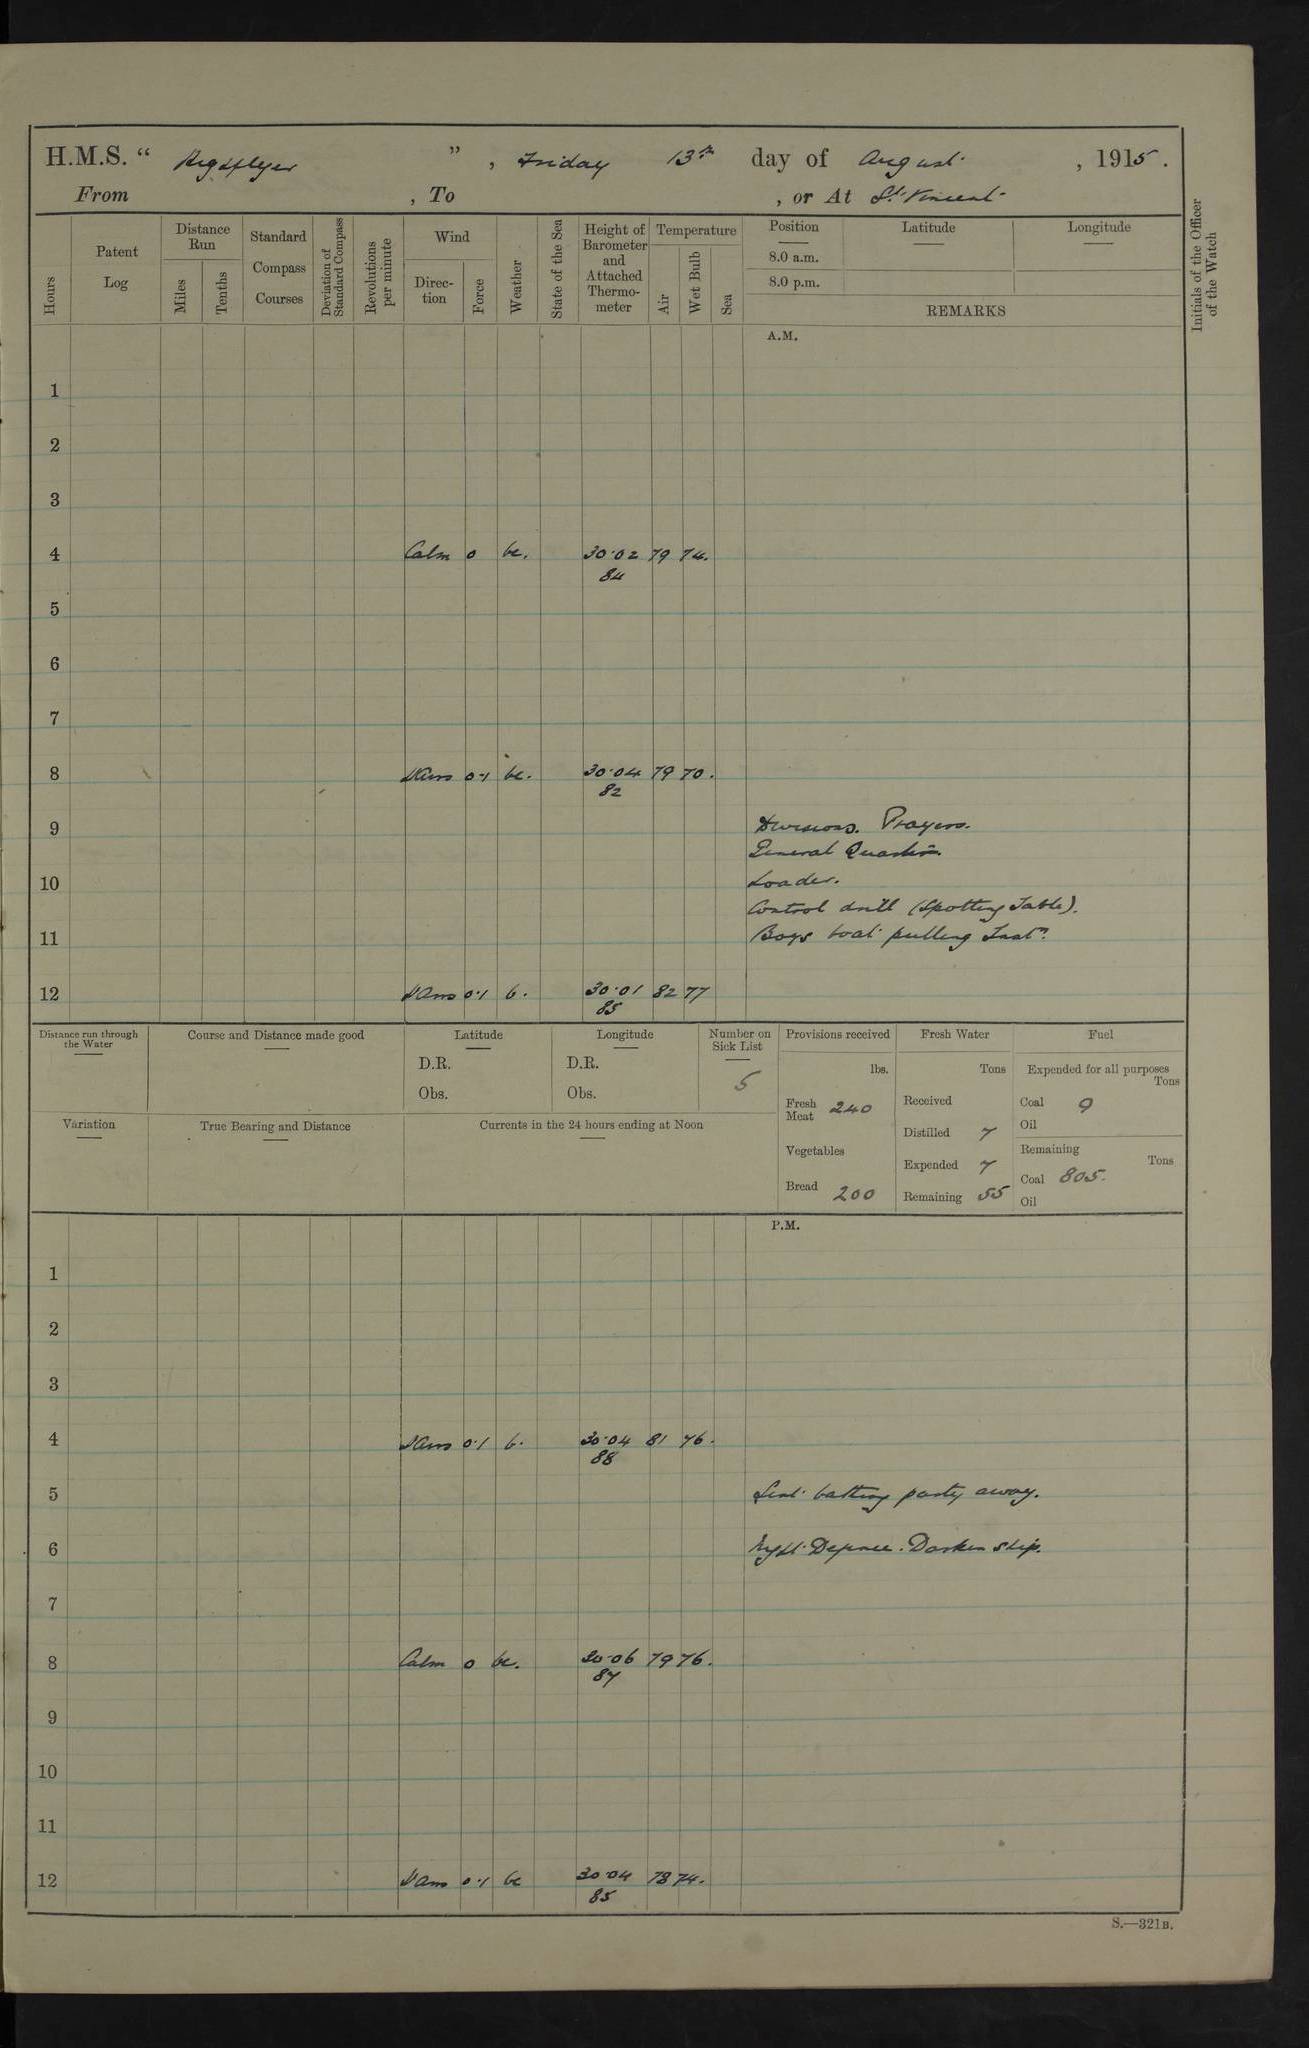 H.M.S. “ Highflyer ” , Friday 13th day of August , 1915 .
From , To , or At St. Vincent
Hours
Patent Log
Distance Run
Miles
Tenths
Standard Compass Courses
Deviation of Standard Compass
Revolutions per minute
Wind
Direc-tion
Force
Weather
State of the Sea
Height of Barometer and Attached Thermo-meter
Temperature
Air
Wet Bulb
Sea
Position
Latitude
Longitude
8.0 a.m.
8.0 p.m.
REMARKS
Initials of the Officer of the Watch
A.M.
1
2
3
4 Calm 0 bc. 30.02 79 74.
84
5
6
7
8 0.1 bc. 30.04 79 70.
82
9 Divisions. Prayers.
General Quarters.
10 Loader.
Control drill (Spotting Table).
11 Boys boat pulling Instn.
12 0.1 b. 30.01 82 77
85
Distance run through the Water
Course and Distance made good
Latitude
D.R.
Obs.
Longitude
D.R.
Obs.
Number on Sick List
5
Provisions received
lbs.
Fresh Meat 240
Vegetables
Bread 200
Fresh Water
Tons
Received
Distilled 7
Expended 7
Remaining 55
Fuel
Expended for all purposes
Tons
Coal 9
Oil
Remaining
Tons
Coal 805.
Oil
Variation
True Bearing and Distance
Currents in the 24 hours ending at Noon
P.M.
1
2
3
4 0.1 b. 30.04 81 76.
88
5 Sent bathing party away.
6 Night Defence. Darken ship.
7
8 Calm 0 bc. 30.06 79 76.
87
9
10
11
12 0.1 bc 30.04 78 74.
85
S.—321B.